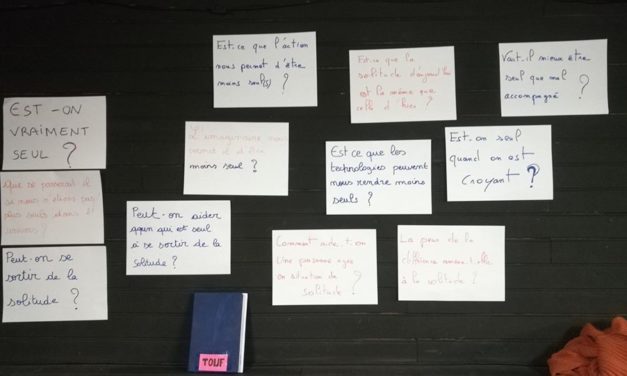 Est-ce que l'action
nous permet d'être
moins seul(s) ?
Est-ce que la
solitude d'aujourd'hui
est la même que
celle d'hier ?
Vaut-il mieux être
seul que mal
accompagné ?
EST-ON
VRAIMENT
SEUL ?
L'imaginaire nous
permet il d'être
moins seul ?
Est ce que les
technologies peuvent
nous rendre moins
seuls ?
Est-on seul
quand on est
croyant ?
Que se passerait il
si nous n'étions pas
plus seuls dans l'
univers ?
Peut-on aider
qqun qui est seul
à se sortir de la
solitude ?
Peut-on se
sortir de la
solitude ?
Comment aide-t-on
une personne agée
en situation de
solitude ?
La peur de la
différence mène-t-elle
à la solitude ?
TOUF